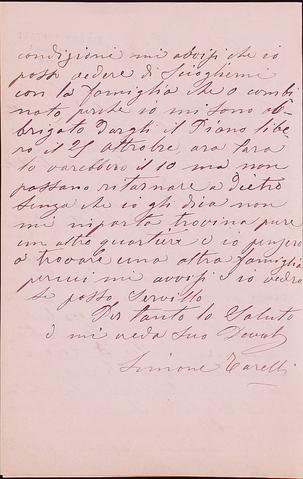 condizioni mi avvisi che io
posso vedere di Sciogliermi
con la famiglia che o combi
nato perche io mi sono ob-
brigato Dargli il Piano libe
ro il 25 ottobre ora
lo varebbero il 10 ma non
possano ritornare a Dietro
Senza che io gli dica non
mi niporta trovina pure
un altro quartiere e io pensero
a trovare una altra famiglia
percui mi avvisi e io vedro
se posso Servillo
Per tanto lo Saluto
e mi creda Suo Devot
Simone Tarelli